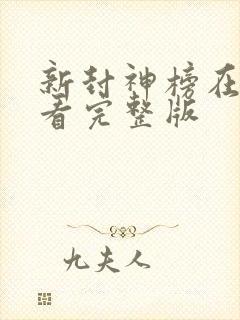 新封神榜在
看完整版
九夫人